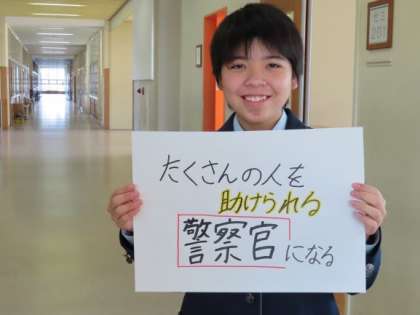 たくさんの人を
助けられる
警察官になる